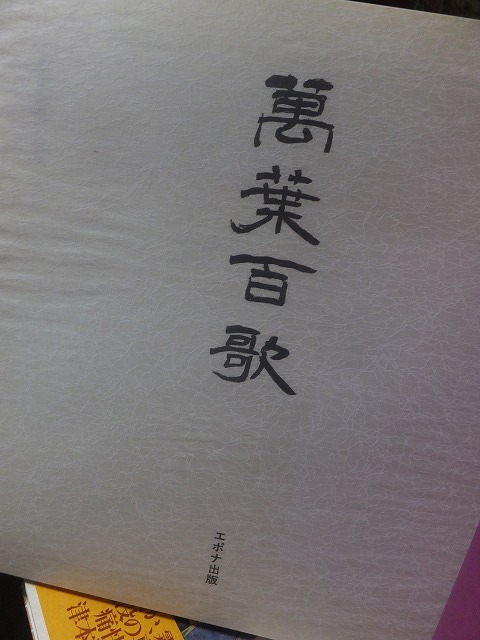 萬葉百歌
エポナ出版